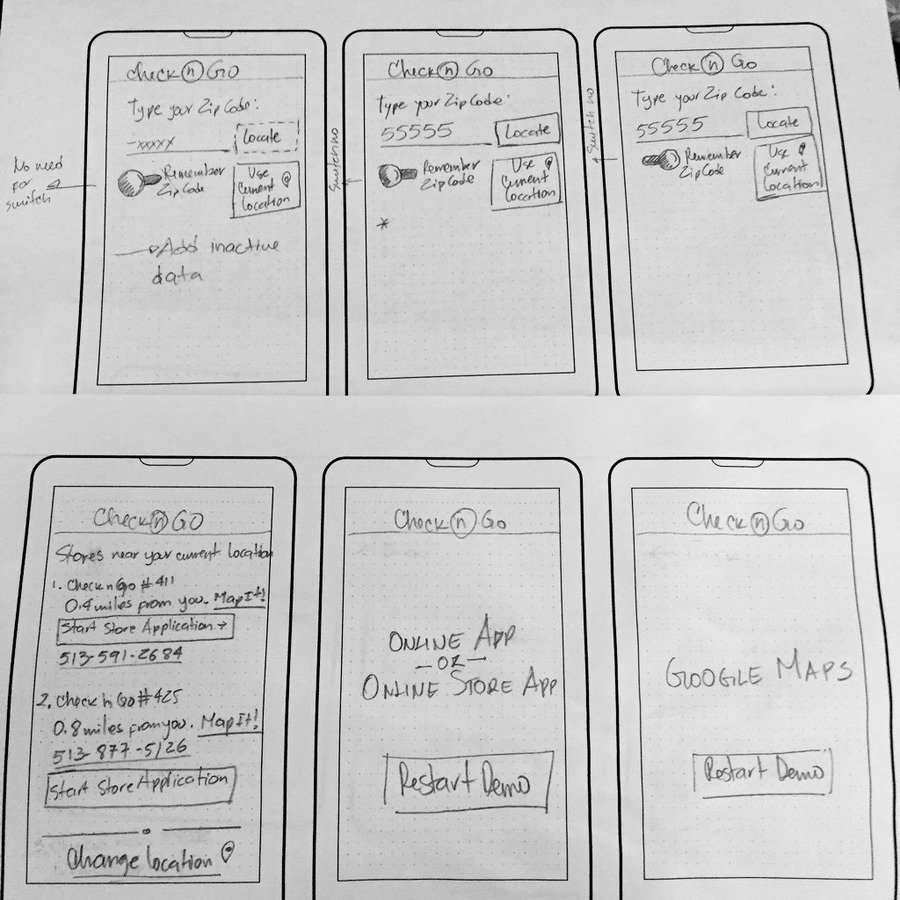 No need
for
switch
Check n Go
Type your Zip Code:
-xxxxx
Locate
Remember
Zip Code
Use
Current
Location
Add inactive
data
Switch no
Check n Go
Type your Zip Code:
55555
Locate
Remember
Zip Code
Use
Current
Location
*
Switch no
Check n Go
Type your Zip Code:
55555
Locate
Remember
Zip Code
Use
Current
Location
Check n Go
Stores near your current location
1. Check n Go #411
0.4 miles from you. Map It!
Start Store Application →
513-591-2684
2. Check n Go #425
0.8 miles from you. Map It!
513-877-5126
Start Store Application
Change location
Check n Go
ONLINE APP
-OR-
ONLINE STORE APP
Restart Demo
Check n Go
GOOGLE MAPS
Restart Demo